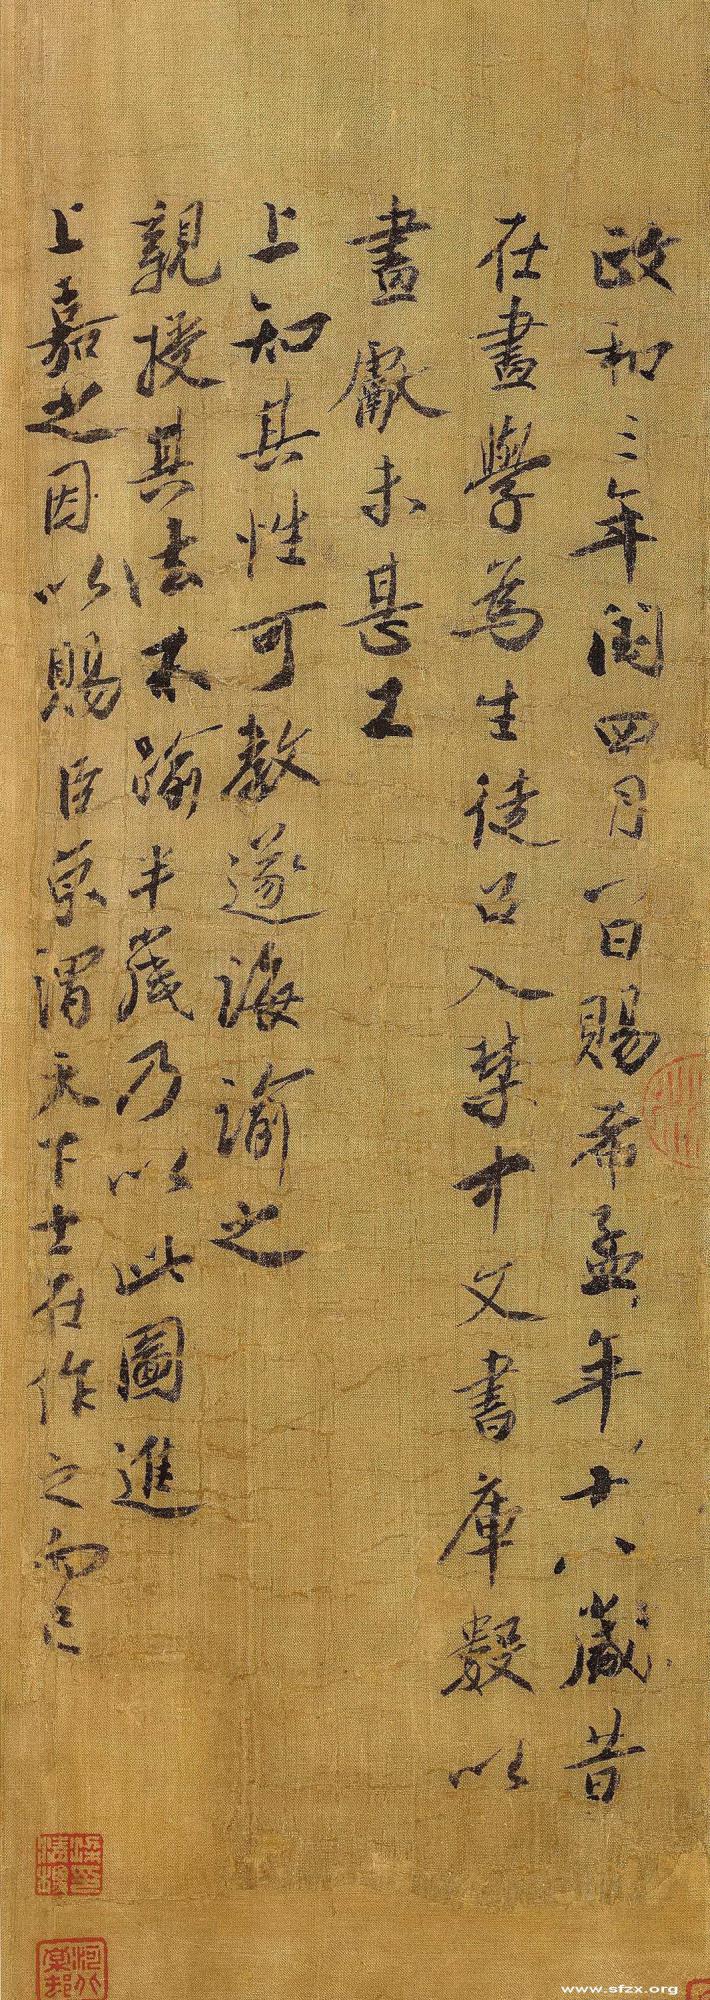 政和三年閏四月一日賜希孟年十八歲昔
在畫學爲生徒召入禁中文書庫數以
畫獻未甚工
上知其性可教遂誨諭之
親授其法不踰半歲乃以此圖進
上嘉之因以賜臣京謂天下士在作之而已
www.sfzx.org